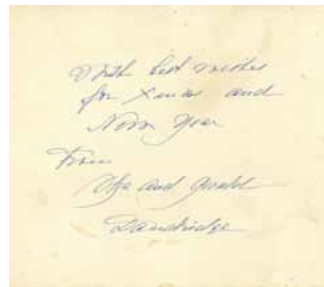 With best wishes
for Xmas and
New Year
From
and Gerald
Dandridge